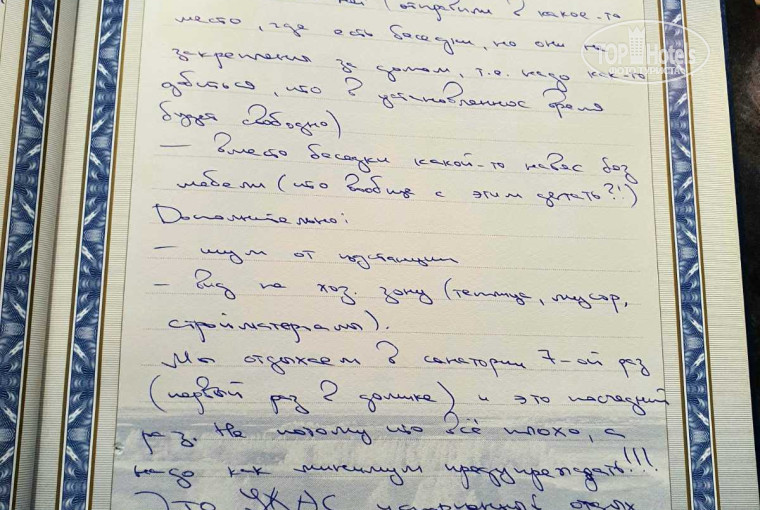 (отправили в какое-то
место, где есть беседки, но они не
закреплены за домом, т.е. надо как-то
убиться, что в установленное время
будет свободно)
— вместо беседки какой-то навес без
мебели (что вообще с этим делать?!)
Дополнительно:
— шум от подстанции
— вид на хоз. зону (теплица, мусор,
стройматериалы).
Мы отдыхаем в санатории 7-ой раз
(первый раз в домике) и это последний
раз. Не потому что всё плохо, а
надо как минимум предупреждать!!!
Это УЖАС испорченный отдых
TopHotels